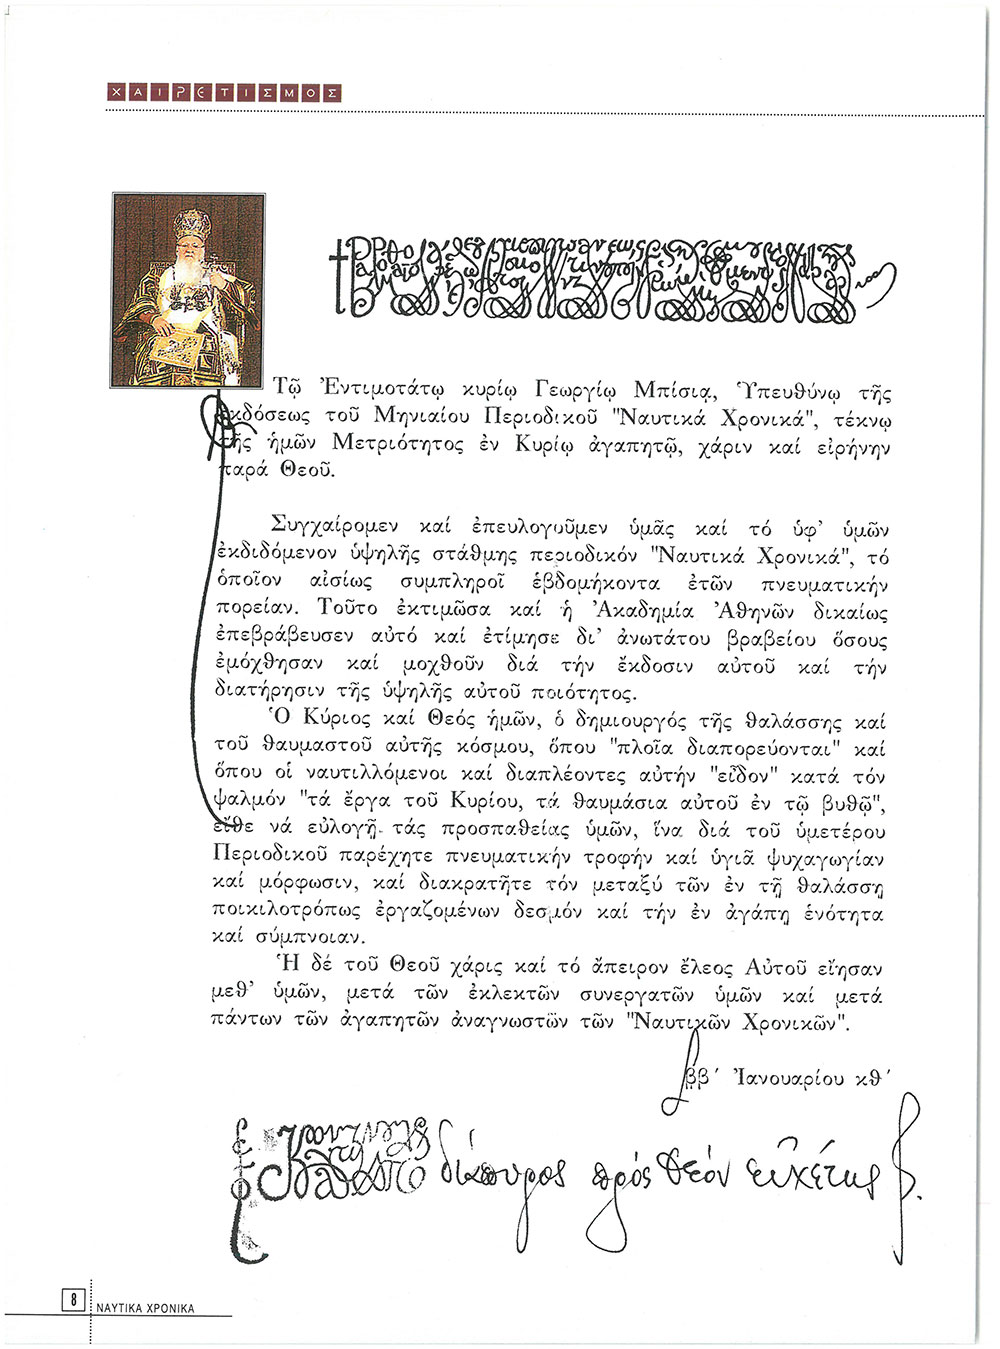 ΧΑΙΡΕΤΙΣΜΟΣ
Τῷ Ἐντιμοτάτῳ κυρίῳ Γεωργίῳ Μπίσια, Ὑπευθύνῳ τῆς
ἐκδόσεως τοῦ Μηνιαίου Περιοδικοῦ "Ναυτικά Χρονικά", τέκνῳ
τῆς ἡμῶν Μετριότητος ἐν Κυρίῳ ἀγαπητῷ, χάριν καί εἰρήνην
παρά Θεοῦ.
Συγχαίρομεν καί ἐπευλογοῦμεν ὑμᾶς καί τό ὑφ' ὑμῶν
ἐκδιδόμενον ὑψηλῆς στάθμης περιοδικόν "Ναυτικά Χρονικά", τό
ὁποῖον αἰσίως συμπληροῖ ἑβδομήκοντα ἐτῶν πνευματικήν
πορείαν. Τοῦτο ἐκτιμῶσα καί ἡ Ἀκαδημία Ἀθηνῶν δικαίως
ἐπεβράβευσεν αὐτό καί ἐτίμησε δι' ἀνωτάτου βραβείου ὅσους
ἐμόχθησαν καί μοχθοῦν διά τήν ἔκδοσιν αὐτοῦ καί τήν
διατήρησιν τῆς ὑψηλῆς αὐτοῦ ποιότητος.
Ὁ Κύριος καί Θεός ἡμῶν, ὁ δημιουργός τῆς θαλάσσης καί
τοῦ θαυμαστοῦ αὐτῆς κόσμου, ὅπου "πλοῖα διαπορεύονται" καί
ὅπου οἱ ναυτιλλόμενοι καί διαπλέοντες αὐτήν "εἶδον" κατά τόν
ψαλμόν "τά ἔργα τοῦ Κυρίου, τά θαυμάσια αὐτοῦ ἐν τῷ βυθῷ",
εἴθε νά εὐλογῇ τάς προσπαθείας ὑμῶν, ἵνα διά τοῦ ὑμετέρου
Περιοδικοῦ παρέχητε πνευματικήν τροφήν καί ὑγιᾶ ψυχαγωγίαν
καί μόρφωσιν, καί διακρατῆτε τόν μεταξύ τῶν ἐν τῇ θαλάσσῃ
ποικιλοτρόπως ἐργαζομένων δεσμόν καί τήν ἐν ἀγάπῃ ἑνότητα
καί σύμπνοιαν.
Ἡ δέ τοῦ Θεοῦ χάρις καί τό ἄπειρον ἔλεος Αὐτοῦ εἴησαν
μεθ' ὑμῶν, μετά τῶν ἐκλεκτῶν συνεργατῶν ὑμῶν καί μετά
πάντων τῶν ἀγαπητῶν ἀναγνωστῶν τῶν "Ναυτικῶν Χρονικῶν".
͵ββ´ Ἰανουαρίου κθ´
διάπυρος πρός Θεόν εὐχέτης
8 ΝΑΥΤΙΚΑ ΧΡΟΝΙΚΑ